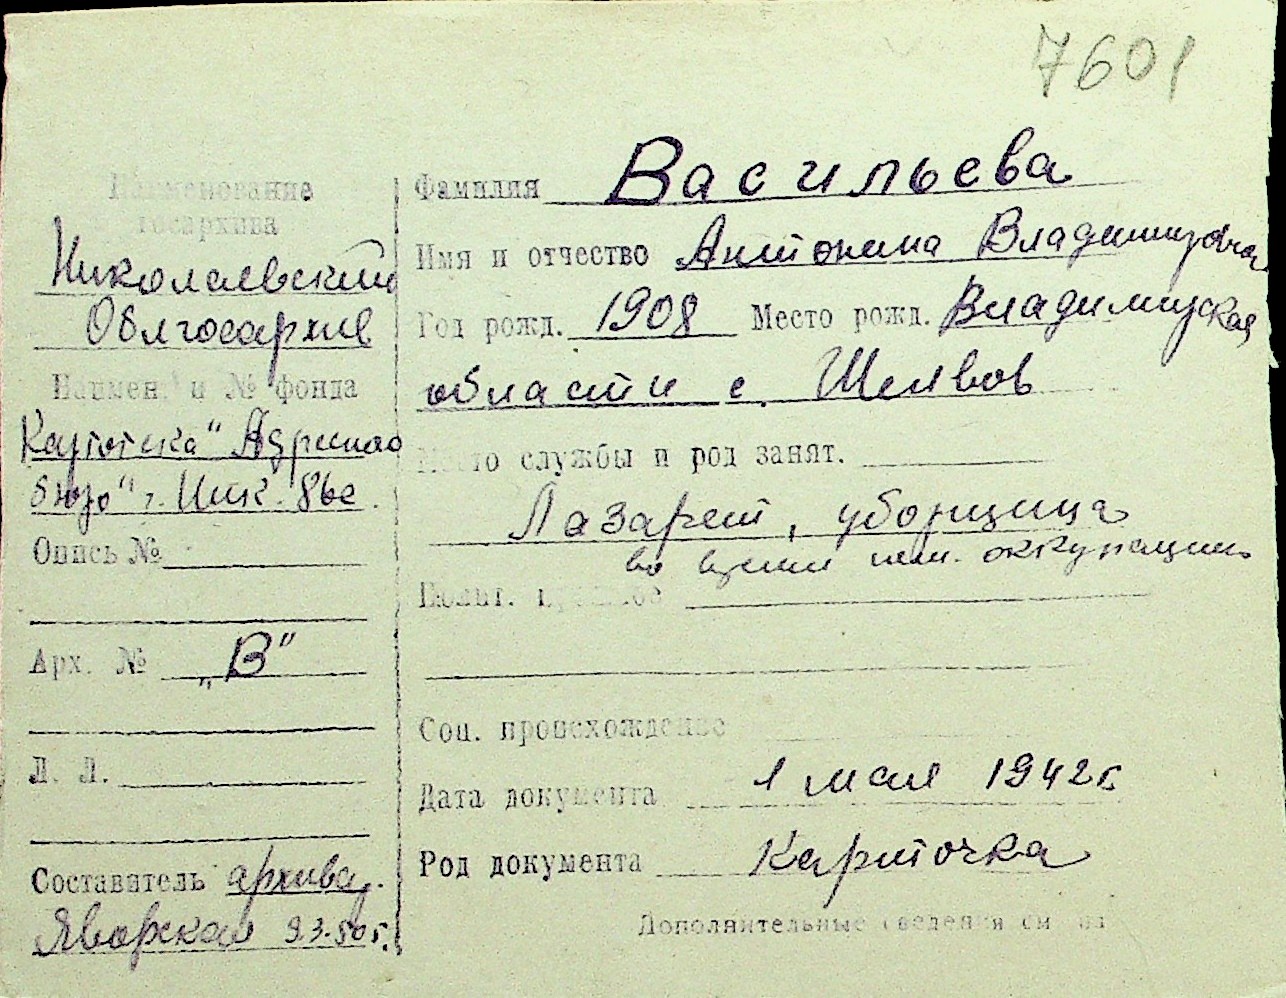 7601
Наименование
госархива
Николаевский
Облгосархив
Наимен. и № фонда
Картотека "Адресное
бюро" г. Ник.
Опись №
Арх. № „В"
Л. Л.
Составитель архивар.
Яворская 9.3.50г.
Фамилия Васильева
Имя и отчество Антонина Владимировна
Год рожд. 1908 Место рожд. Владимирская
области с.
Место службы и род занят.
Лазарет, уборщица
во время нем. оккупации
Полит. прошлое
Соц. происхождение
Дата документа 1 мая 1942г.
Род документа Карточка
Дополнительные сведения см. на